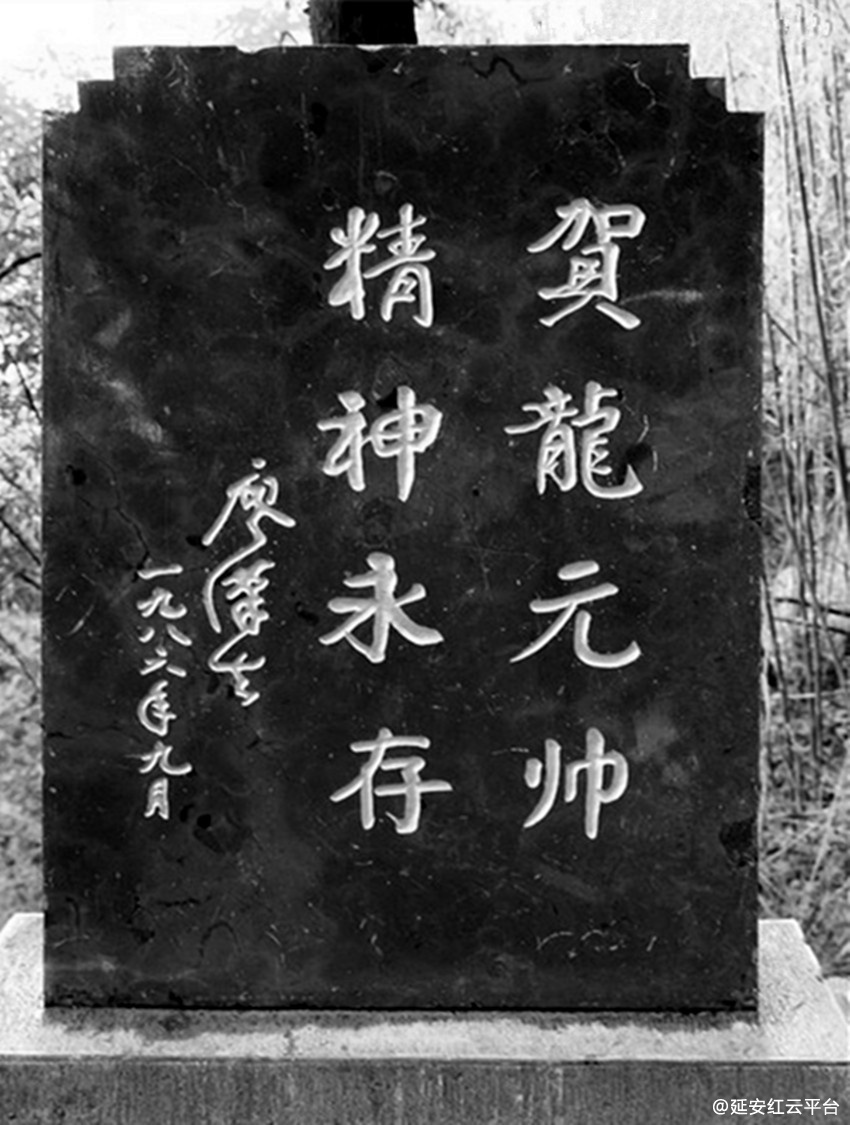 賀龍元帅
精神永存
廖漢生
一九八六年九月
@延安红云平台